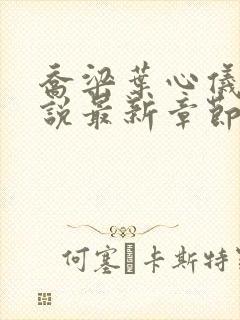 喬梁葉心儀
說最新章節
何塞·卡斯特